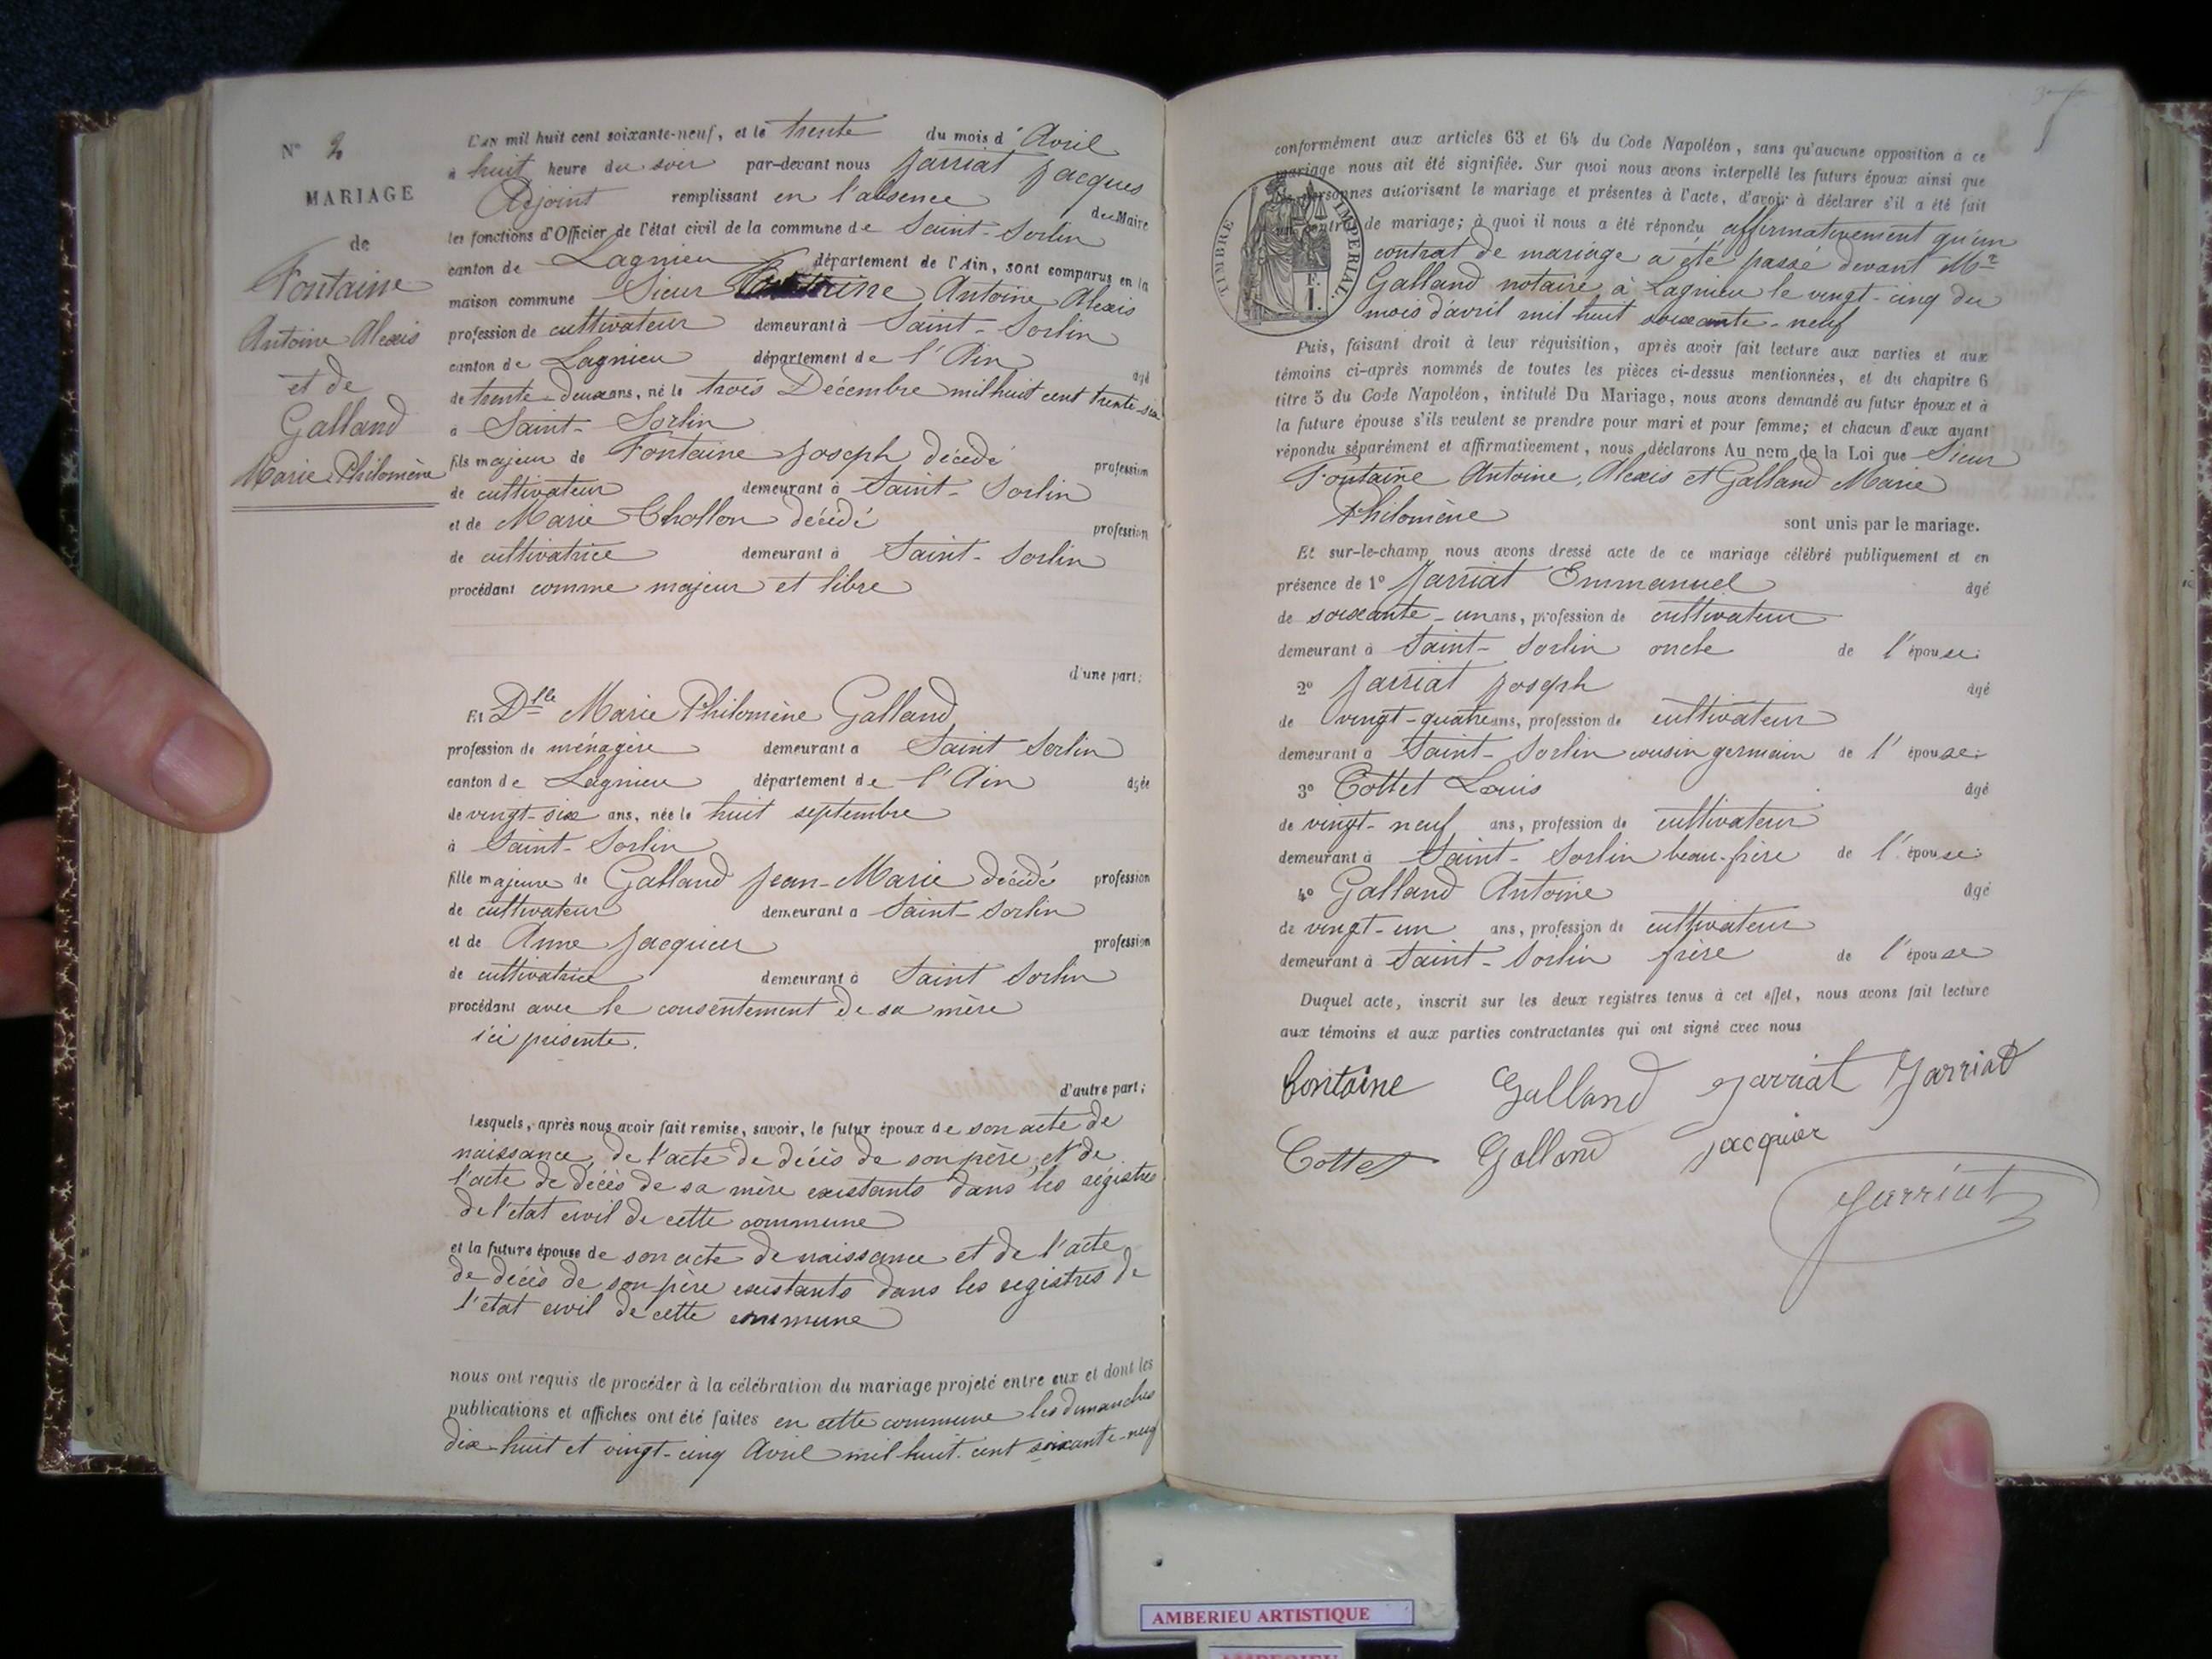 N° 2
MARIAGE
de
Fontaine
Antoine Alexis
et de
Galland
Marie Philomène
L'an mil huit cent soixante-neuf, et le trente du mois d'Avril
à huit heure du soir par-devant nous Jarriat Jacques
Adjoint remplissant en l'absence du Maire
les fonctions d'Officier de l'état civil de la commune de Saint-Sorlin
canton de Lagnieu département de l'Ain, sont comparus en la
maison commune Sieur Fontaine Antoine Alexis
profession de cultivateur demeurant à Saint-Sorlin
canton de Lagnieu département de l'Ain âgé
de trente-deux ans, né le trois Décembre mil huit cent trente-six
à Saint-Sorlin
fils majeur de Fontaine Joseph décédé profession
de cultivateur demeurant à Saint-Sorlin
et de Marie Chollon décédé profession
de cultivatrice demeurant à Saint-Sorlin
procédant comme majeur et libre
d'une part;
Et Dlle Marie Philomène Galland
profession de ménagère demeurant à Saint Sorlin
canton de Lagnieu département de l'Ain âgée
de vingt-six ans, née le huit septembre
à Saint-Sorlin
fille majeure de Galland Jean-Marie décédé profession
de cultivateur demeurant à Saint-Sorlin
et de Anne Jacquier profession
de cultivatrice demeurant à Saint Sorlin
procédant avec le consentement de sa mère
ici présente.
d'autre part;
Lesquels, après nous avoir fait remise, savoir, le futur époux de son acte de
naissance, de l'acte de décès de son père, et de
l'acte de décès de sa mère existants dans les régistres
de l'état civil de cette commune
et la future épouse de son acte de naissance et de l'acte
de décès de son père existants dans les registres de
l'état civil de cette commune
nous ont requis de procéder à la célébration du mariage projeté entre eux et dont les
publications et affiches ont été faites en cette commune les dimanches
dix-huit et vingt-cinq Avril mil huit cent soixante-neuf
conformément aux articles 63 et 64 du Code Napoléon, sans qu'aucune opposition à ce
mariage nous ait été signifiée. Sur quoi nous avons interpellé les futurs époux ainsi que
les personnes autorisant le mariage et présentes à l'acte, d'avoir à déclarer s'il a été fait
un contrat de mariage; à quoi il nous a été répondu affirmativement qu'un
contrat de mariage a été passé devant Mre
Galland notaire à Lagnieu le vingt-cinq du
mois d'avril mil huit soixante-neuf
TIMBRE IMPÉRIAL.
1 F.
Puis, faisant droit à leur réquisition, après avoir fait lecture aux parties et aux
témoins ci-après nommés de toutes les pièces ci-dessus mentionnées, et du chapitre 6
titre 5 du Code Napoléon, intitulé Du Mariage, nous avons demandé au futur époux et à
la future épouse s'ils veulent se prendre pour mari et pour femme; et chacun d'eux ayant
répondu séparément et affirmativement, nous déclarons Au nom de la Loi que Sieur
Fontaine Antoine, Alexis et Galland Marie
Philomène sont unis par le mariage.
Et sur-le-champ nous avons dressé acte de ce mariage célébré publiquement et en
présence de 1° Jarriat Emmanuel âgé
de soixante-un ans, profession de cultivateur
demeurant à Saint-Sorlin oncle de l'épouse;
2° Jarriat Joseph âgé
de vingt-quatre ans, profession de cultivateur
demeurant à Saint-Sorlin cousin germain de l'épouse;
3° Cottet Louis âgé
de vingt-neuf ans, profession de cultivateur
demeurant à Saint-Sorlin beau-frère de l'épouse;
4° Galland Antoine âgé
de vingt-un ans, profession de cultivateur
demeurant à Saint-Sorlin frère de l'épouse
Duquel acte, inscrit sur les deux registres tenus à cet effet, nous avons fait lecture
aux témoins et aux parties contractantes qui ont signé avec nous
Fontaine Galland Jarriat Jarriat
Cottet Galland Jacquier
Jarriat
AMBERIEU ARTISTIQUE
AMBERIEU